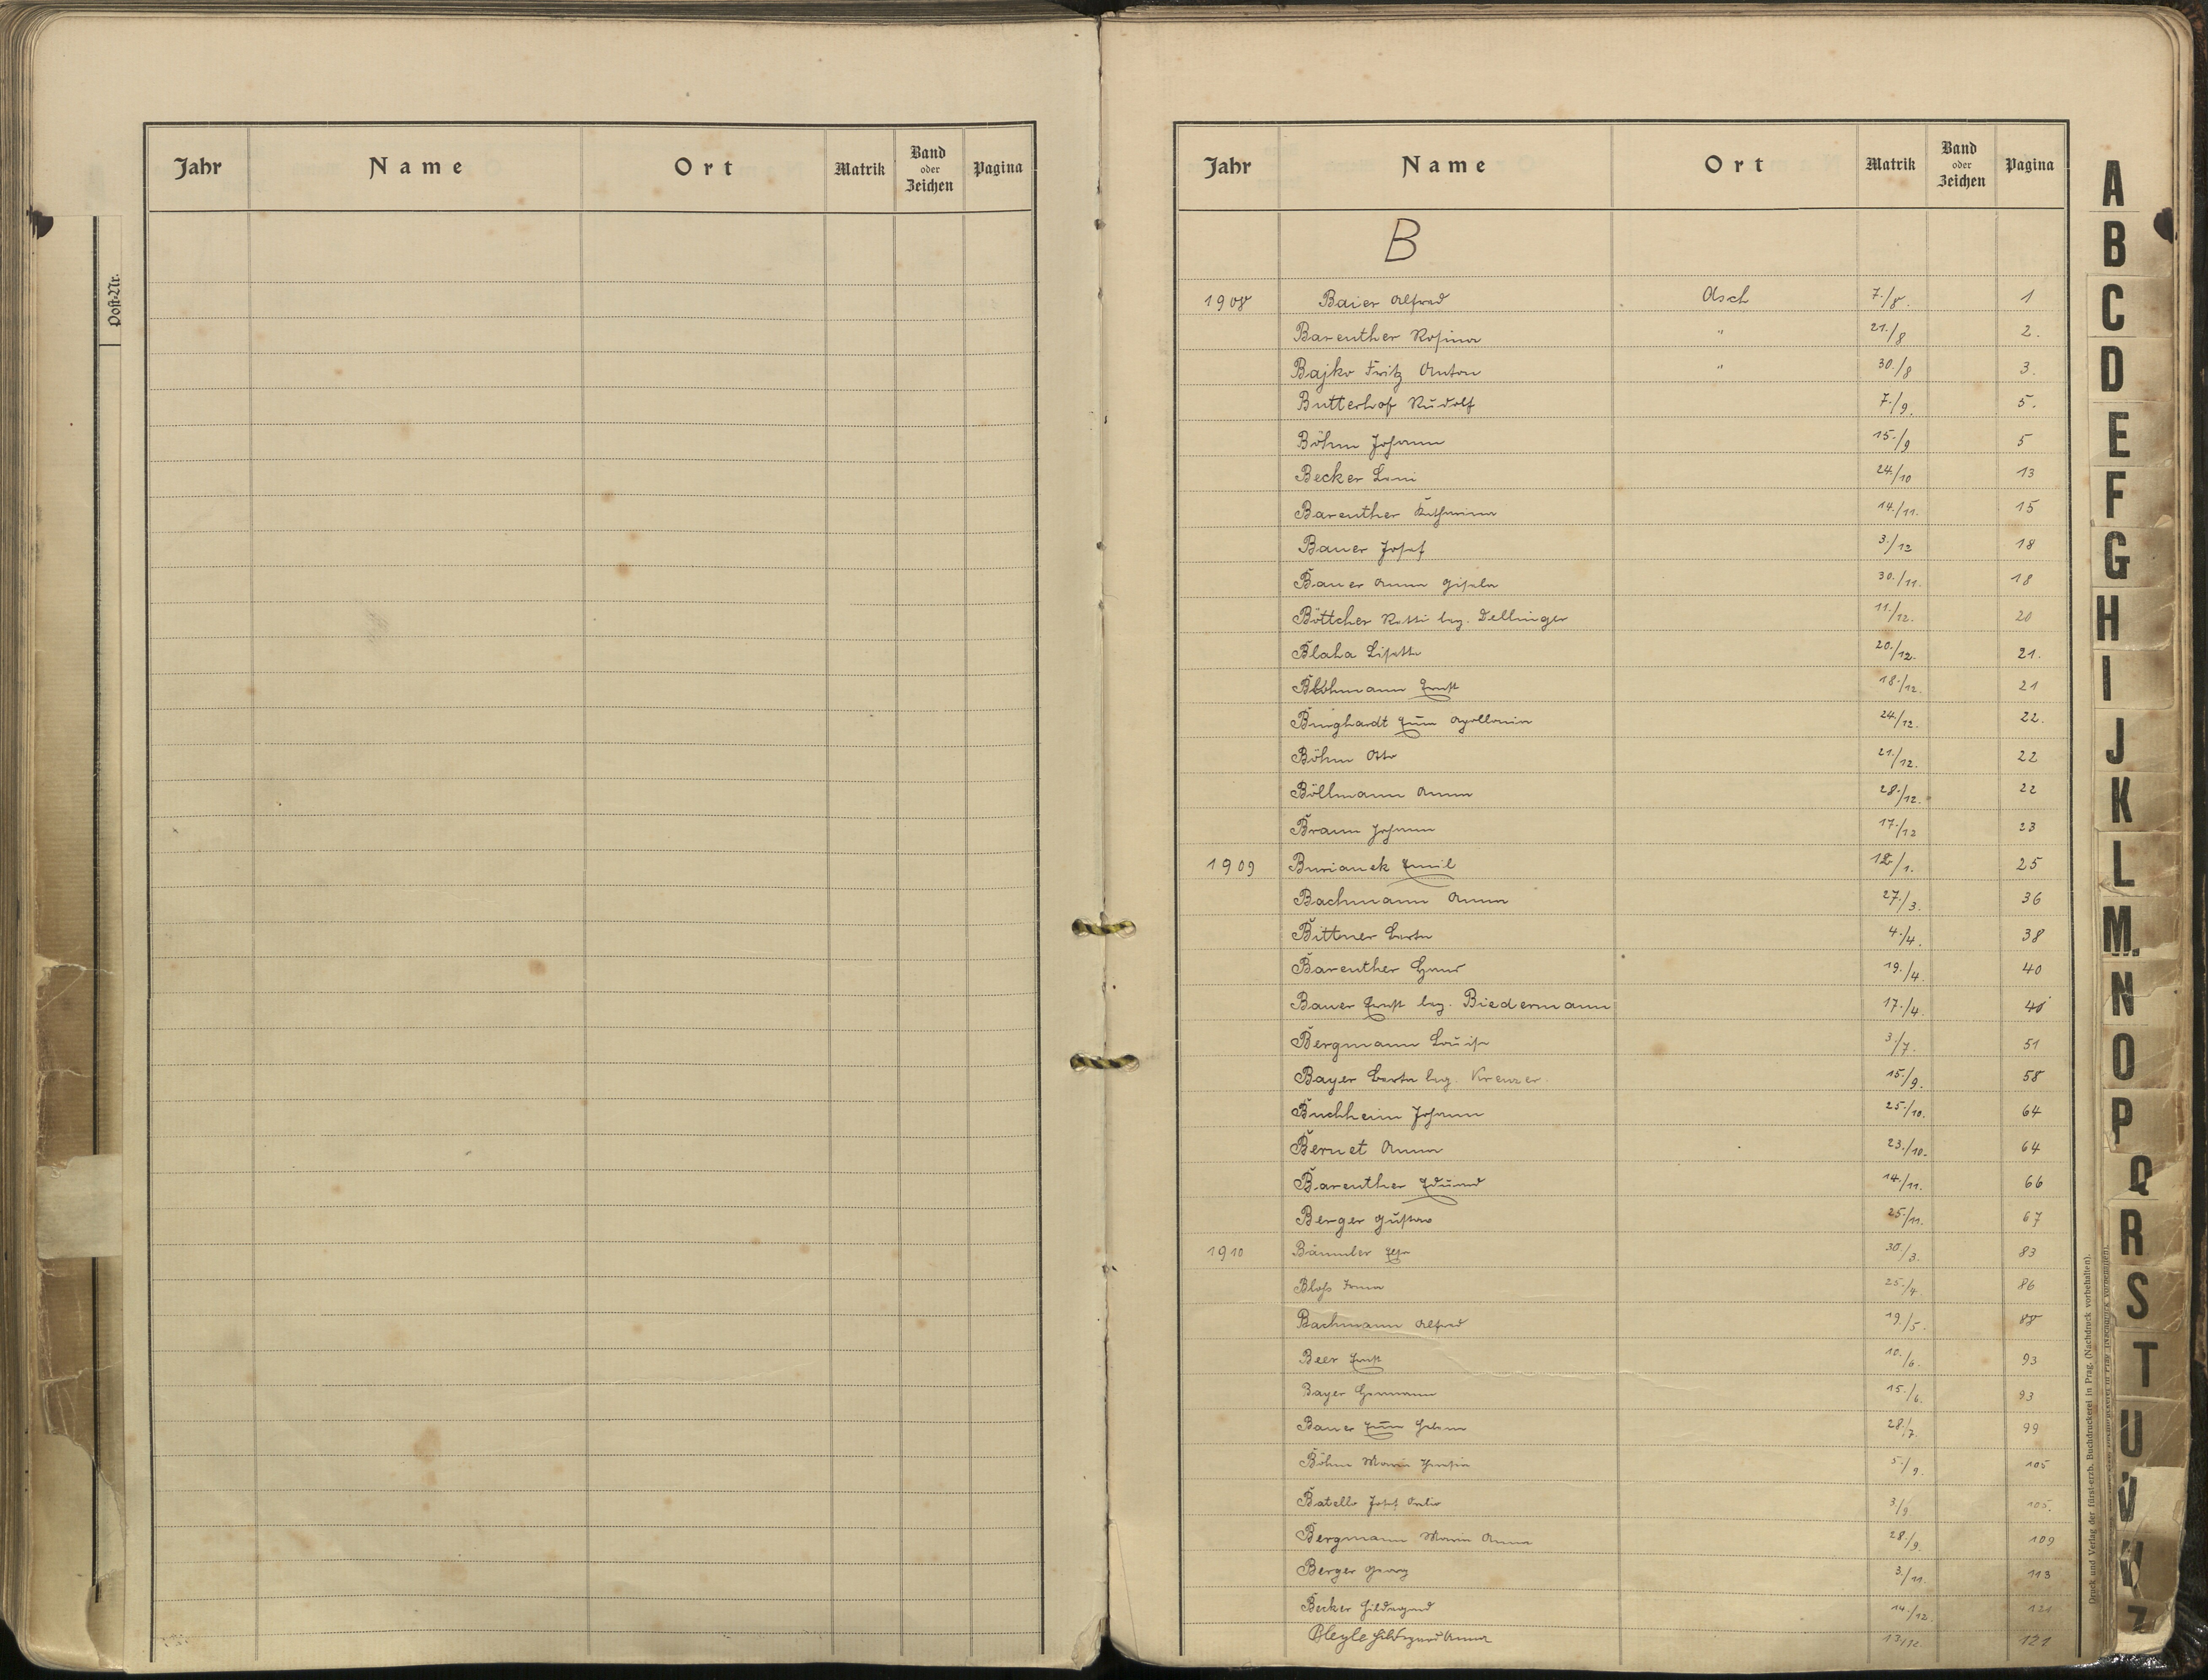 Jahr Name Ort Matrik Band oder Zeichen Pagina
Post-Nr.
Jahr Name Ort Matrik Band oder Zeichen Pagina
B
1908 Baier Alfred Asch 7./8. 1
Bareuther Rosina " 21./8 2.
Bajko Fritz Anton " 30./8 3.
Butterhof Rudolf 7./9. 5.
Böhm Johann 15./9 5
Becker Leni 24./10 13
Bareuther Katharina 14./11. 15
Bauer Josef 3./12 18
Bauer Anna Gisela 30./11. 18
Böttcher Betti bzg. Dellinger 11./12. 20
Blaha Lisette 20./12. 21.
Blohmann Ernst 18./12. 21
Burghardt Emma Apollonia 24./12. 22.
Böhm Otto 21./12. 22
Böllmann Anna 28./12. 22
Braun Johann 17./12 23
1909 Burianek Emil 12/1. 25
Bachmann Anna 27./3. 36
Bittner Berta 4./4. 38
Bareuther Hans 19./4. 40
Bauer Ernst bzg. Biedermann 17./4.
Bergmann Louise 3./7. 51
Bayer Berta bzg. Kreuzer. 15./9. 58
Buchheim Johann 25./10. 64
Bernet Anna 23./10. 64
Bareuther Eduard 14./11. 66
Berger Gustav 25./11. 67
1910 Bäumler 30/3. 83
Bloß Irma 25./4 86
Bachmann Alfred 19./5. 88
Beer Ernst 10./6. 93
Bayer Hermann 15./6. 93
Bauer Emma Helena 28./7. 99
Böhm Maria 5./9. 105
Batello Josef 3/9 105.
Bergmann Maria Anna 28/9. 109
Berger Georg 3./11. 113
Becker Hildegard 14./12. 121
Bleyle Hildegard Anna 13/12. 121
A
B
C
D
E
F
G
H
I
J
K
L
M.
N
O
P
Q
R
S
T
U
V
W
Z
Druck und Verlag der fürst-erzb. Buchdruckerei in Prag. (Nachdruck vorbehalten).